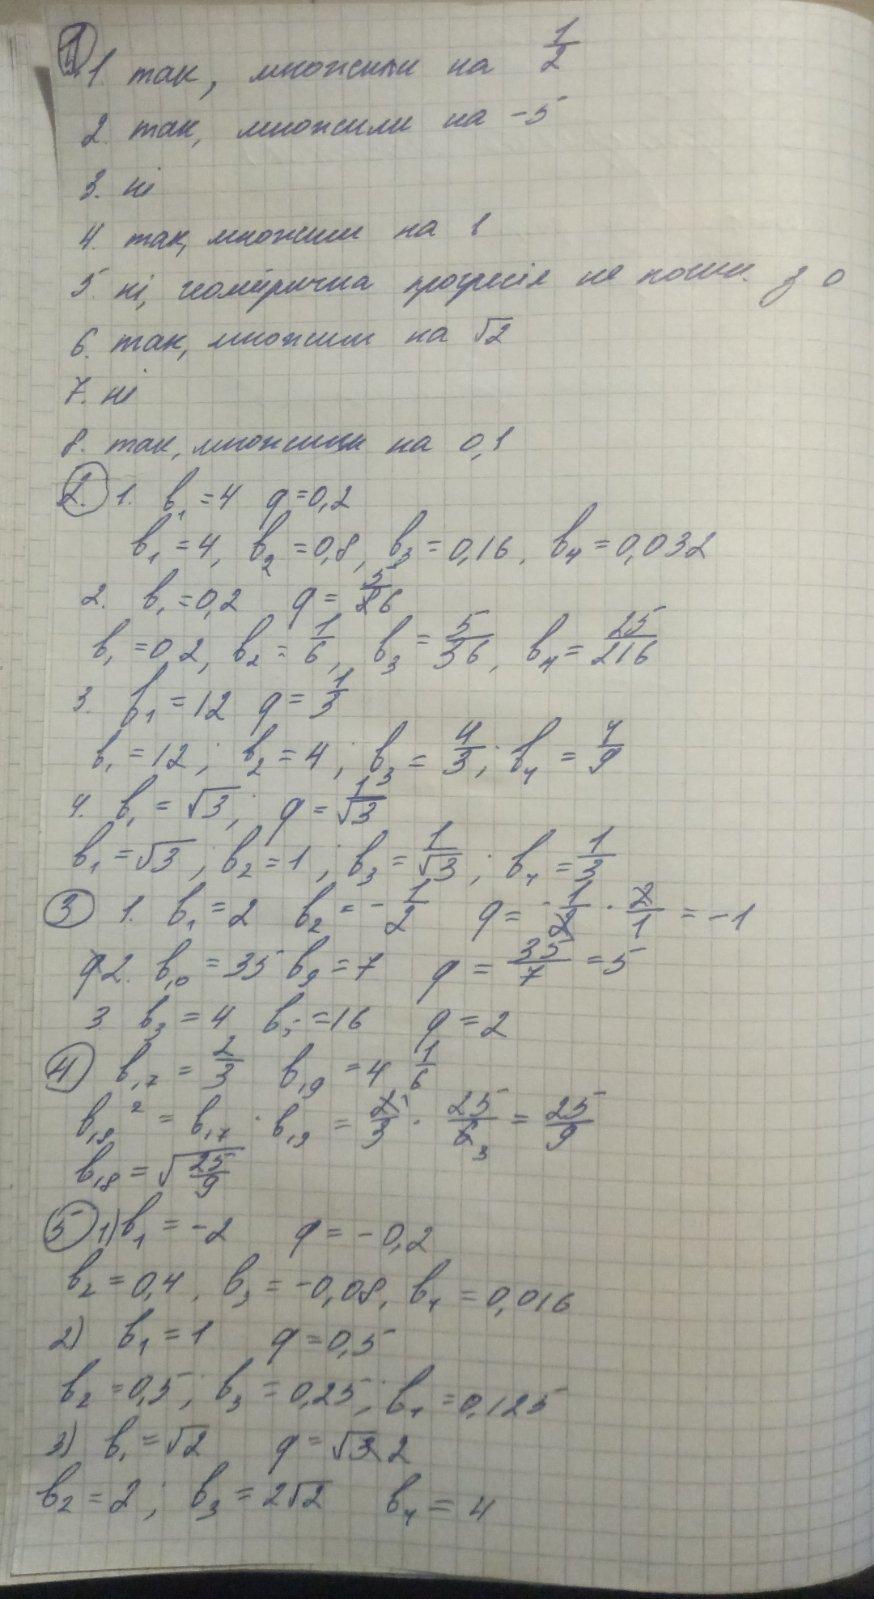 1. 1. так, множили на 1/2
2. так, множили на -5
3. ні
4. так, множили на 1
5. ні, геометрична прогресія не почин. з 0
6. так, множим на √2
7. ні
8. так, множили на 0,1
2. 1. b₁=4 q=0,2
b₁=4, b₂=0,8, b₃=0,16, b₄=0,032
2. b₁=0,2 q=5/6
b₁=0,2, b₂=1/6, b₃=5/36, b₄=25/216
3. b₁=12 q=1/3
b₁=12; b₂=4; b₃=4/3; b₄=4/9
4. b₁=√3; q=1/√3
b₁=√3; b₂=1; b₃=1/√3; b₄=1/3
3 1. b₁=2 b₂=-1/2 q=-1/2·2/1=-1
2. b₁₀=35 b₉=7 q=35/7=5
3 b₃=4 b₅=16 q=2
4 b₁₇=2/3 b₁₉=4 1/6
b₁₈²=b₁₇·b₁₉=2/3·25/6=25/9
b₁₈=√25/9
5 1) b₁=-2 q=-0,2
b₂=0,4, b₃=-0,08, b₄=0,016
2) b₁=1 q=0,5
b₂=0,5; b₃=0,25; b₄=0,125
3) b₁=√2 q=√2
b₂=2; b₃=2√2 b₄=4